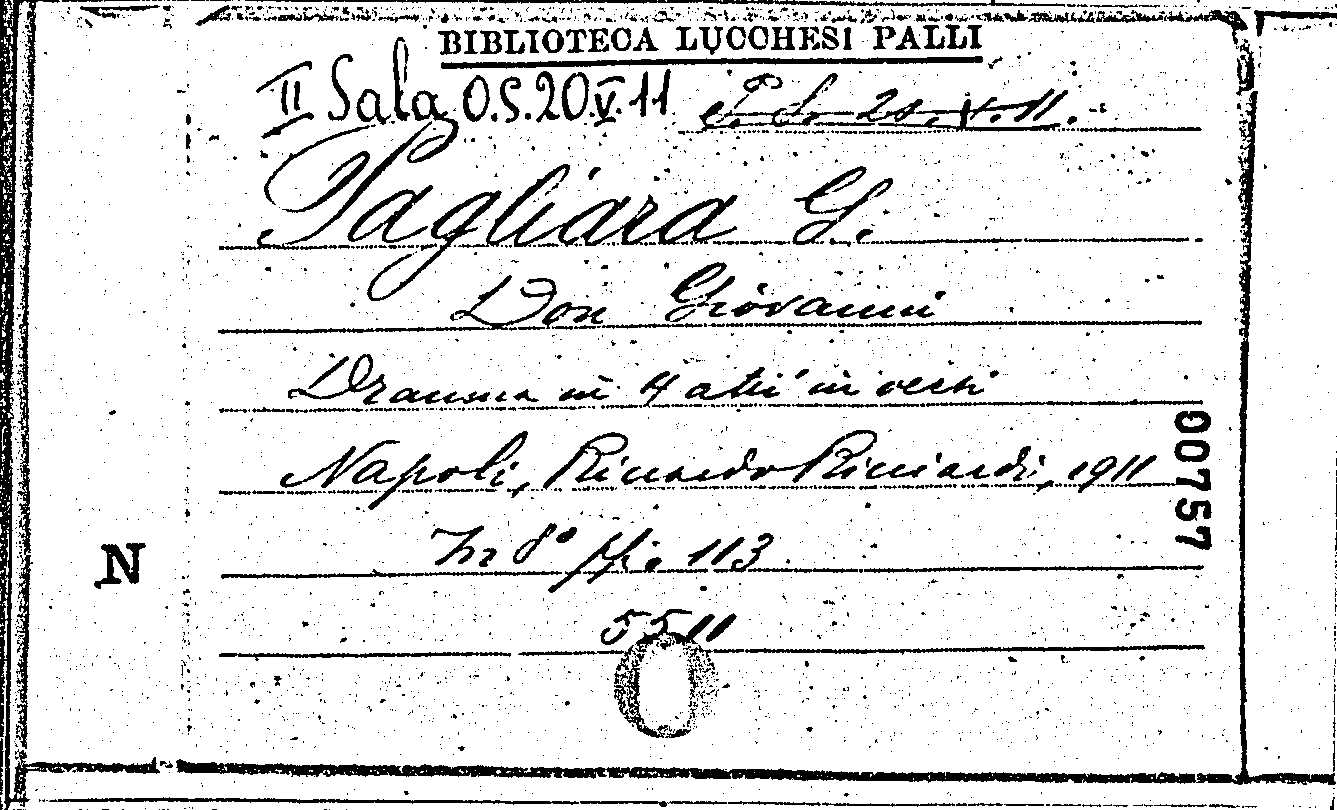 BIBLIOTECA LUCCHESI PALLI
II Sala O.S.20.V.11 P. S. 20. V. 11.
Pagliara G.
Don Giovanni
Dramma in 4 atti in versi
Napoli, Riccardo Ricciardi, 1911
In 8° pp. 113
5511
00757
N
O